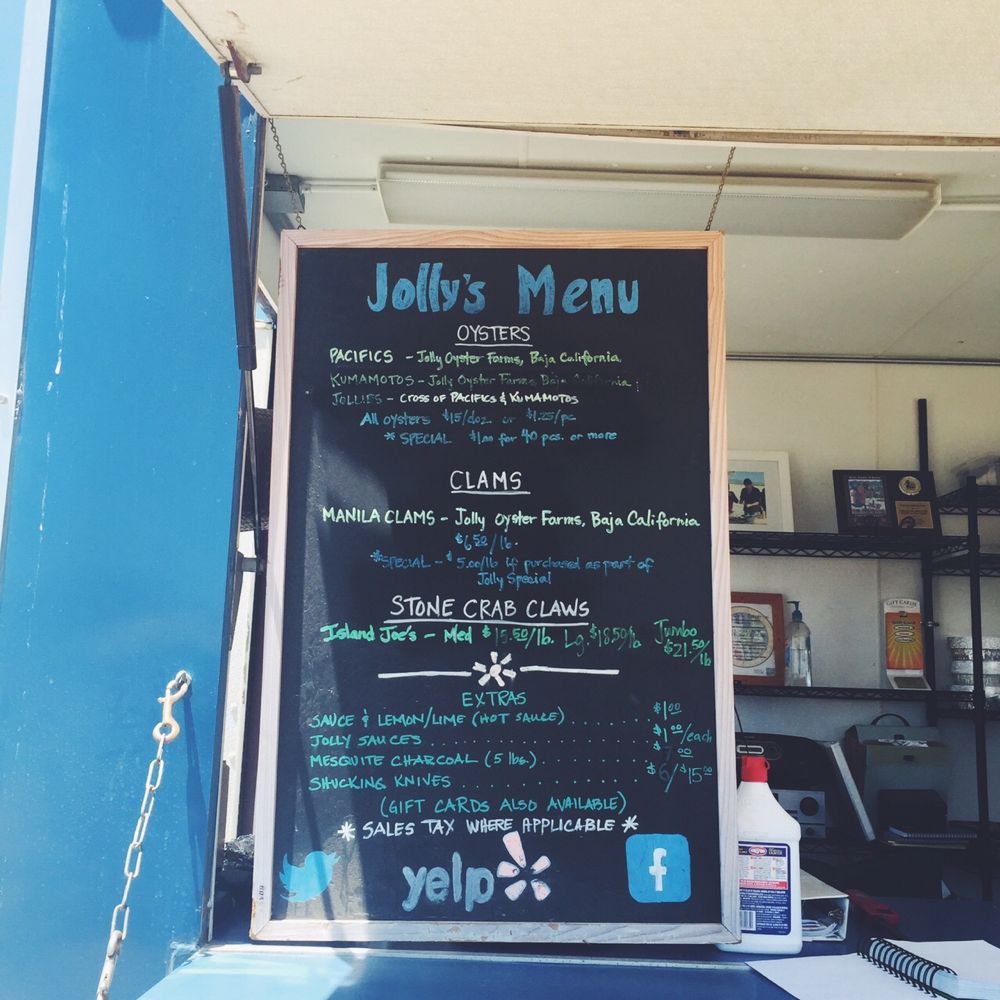 Jolly's Menu
OYSTERS
PACIFICS - Jolly Oyster Farms, Baja California
KUMAMOTOS - Jolly Oyster Farms, Baja California
JOLLIES - CROSS OF PACIFICS & KUMAMOTOS
All oysters $15/doz. or $1.25/pc
* SPECIAL $1.00 for 40 pcs. or more
CLAMS
MANILA CLAMS - Jolly Oyster Farms, Baja California
$6.50/lb.
*SPECIAL - $5.00/lb if purchased as part of
Jolly Special
STONE CRAB CLAWS
Island Joe's - Med $15.50/lb. Lg. $18.50/lb Jumbo $21.50/lb
EXTRAS
SAUCE & LEMON/LIME (HOT SAUCE) ....... $1.00
JOLLY SAUCES ....................... $1.00/each
MESQUITE CHARCOAL (5 lbs.) ......... $7.00
SHUCKING KNIVES ................. $6/$15.00
(GIFT CARDS ALSO AVAILABLE)
* SALES TAX WHERE APPLICABLE *
yelp
f
GIFT CARDS